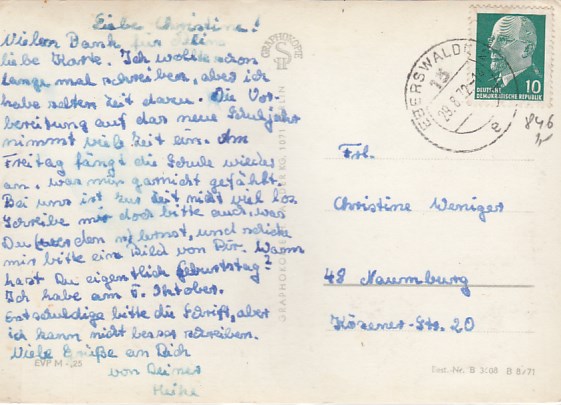 Liebe Christine!
Vielen Dank für Deine
liebe Karte. Ich wollte schon
lange mal schreiben, aber ich
habe selten Zeit davon. Die Vor-
bereitung auf das neue Schuljahr
nimmt viel Zeit ein. Am
Freitag fängt die Schule wieder
an. was mir garnicht gefällt.
Bei uns ist zur Zeit nicht viel los.
Schreibe mir doch bitte auch, was
Du lernst, und schicke
mir bitte ein Bild von Dir. Wann
hast Du eigentlich Geburtstag?
Ich habe am Oktober.
Entschuldige bitte die Schrift, aber
ich kann nicht besser schreiben.
Viele Grüße an Dich
von Deiner
Heike
EVP M -,25
GRAPHOKOPIE
EBERSWALDE
DEUTSCHE
DEMOKRATISCHE REPUBLIK
10
846
Frl.
Christine Weniger
48 Naumburg
Kösener-Str. 20
Best.-Nr. B 3108 B 8/71